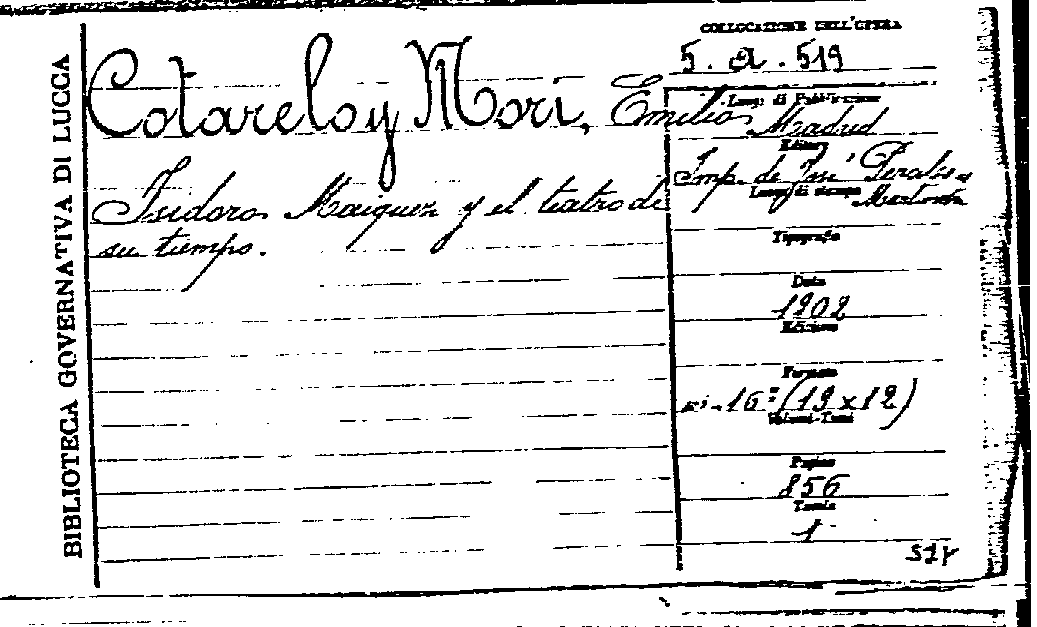 BIBLIOTECA GOVERNATIVA DI LUCCA
COLLOCAZIONE DELL'OPERA
5. a. 519
Cotarelo y Mori, Emilio
Isidoro Maiquez y el teatro de
su tiempo.
Luogo di Pubblicazione
Madrid
Editore
Imp. de José Perales y
Martinez
Luogo di stampa
Tipografia
Data
1902
Edizione
Formato
in-16º (19x12)
Volumi-Tomi
Pagine
856
Tavole
1